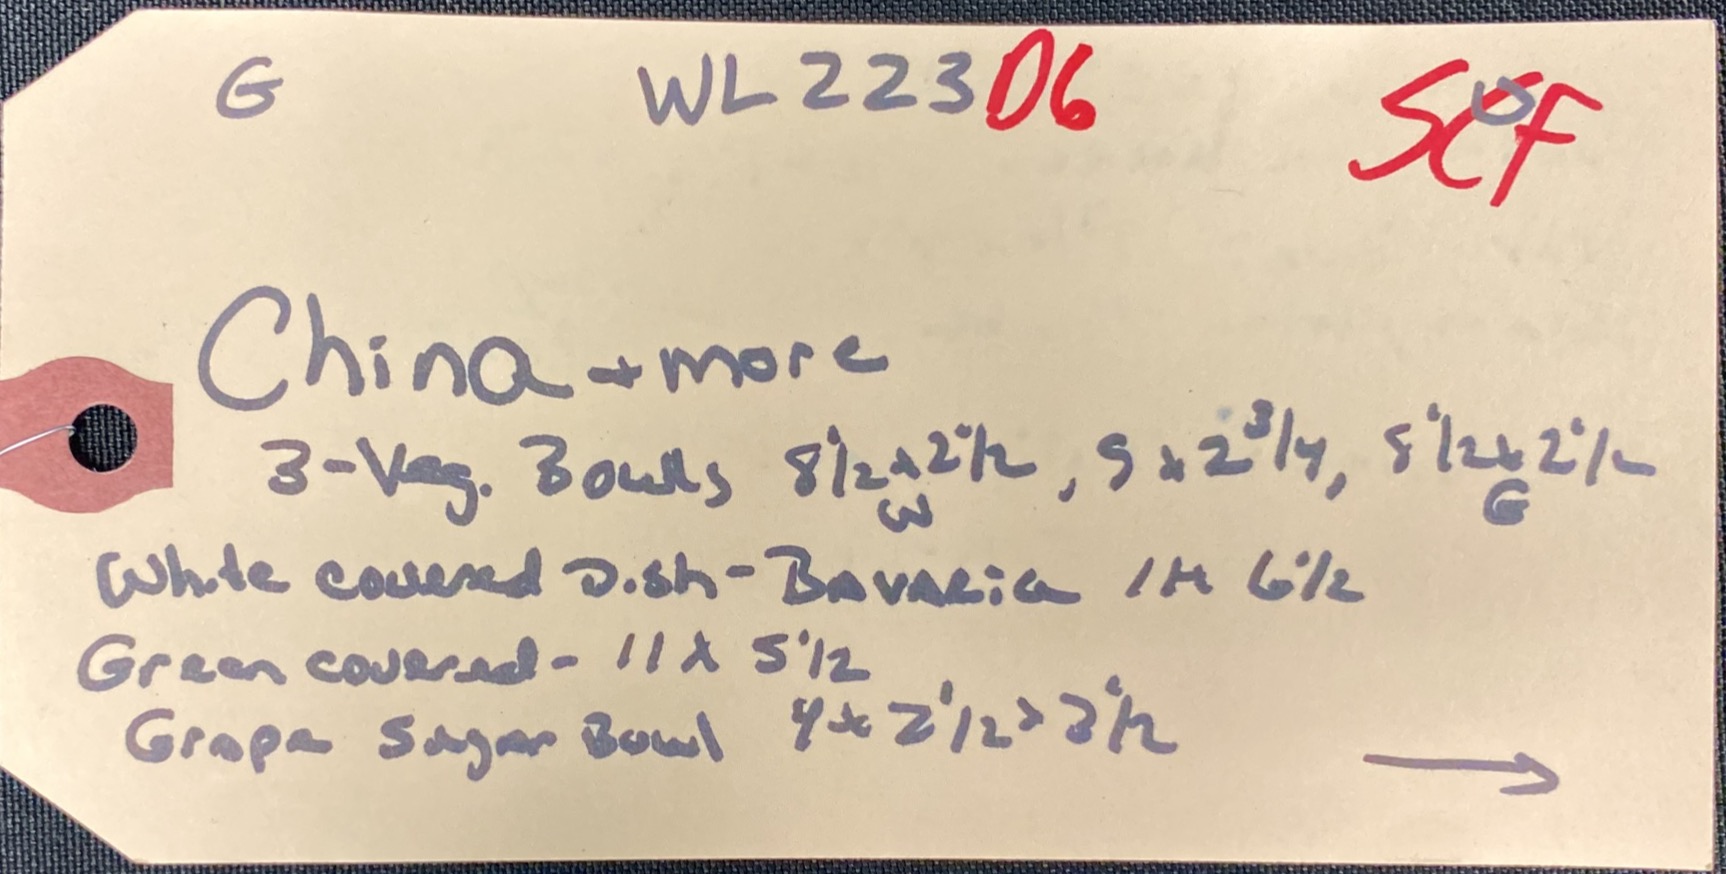 G WL223D6 SCF
China + more
3-Veg. Bowls 8 1/2 x 2 1/2, 9 x 2 3/4, 8 1/2 x 2 1/2
W G
White covered Dish - Bavaria 6 1/2
Green covered - 11 x 5 1/2
Grape Sugar Bowl 4 x 2 1/2 x 3 1/2
→